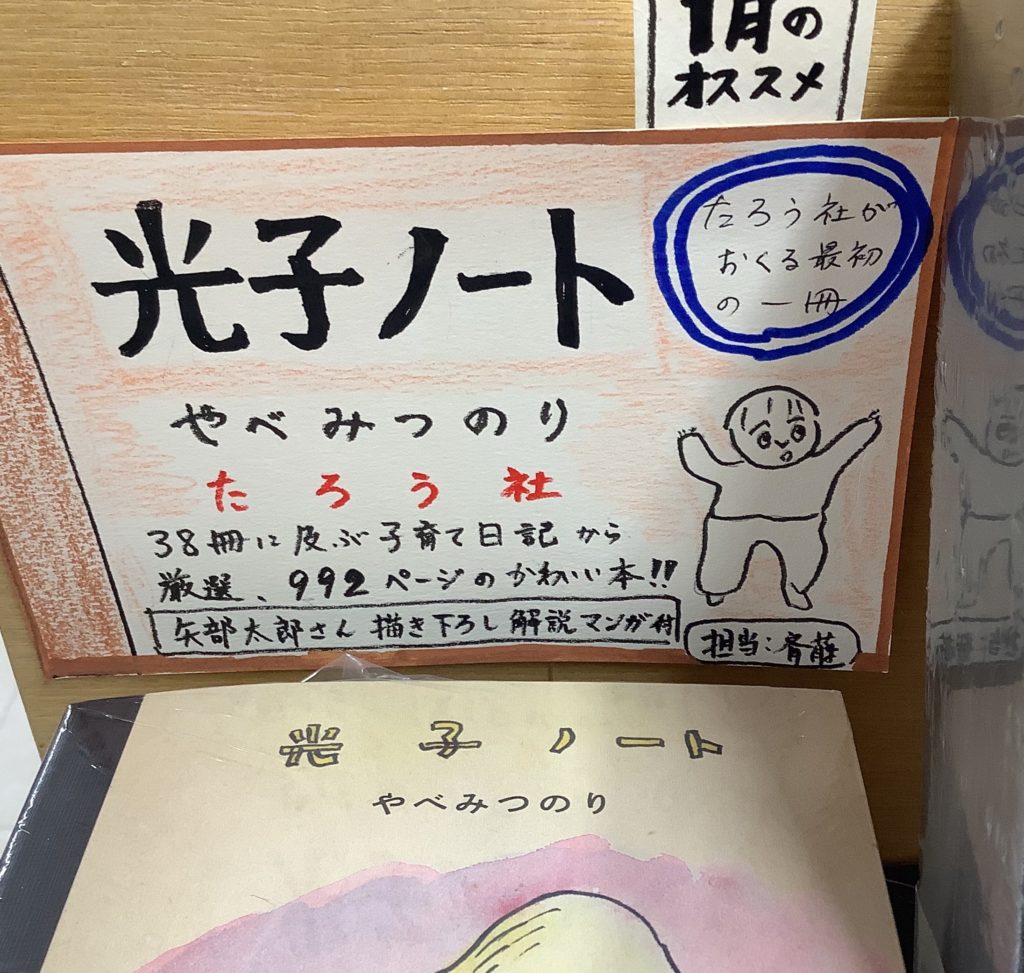 1月の
オススメ
光子ノート
たろう社が
おくる最初
の一冊
やべみつのり
たろう社
38冊に及ぶ子育て日記から
厳選、992ページのかわいい本!!
矢部太郎さん描き下ろし解説マンガ付
担当:斉藤
光子ノート
やべみつのり